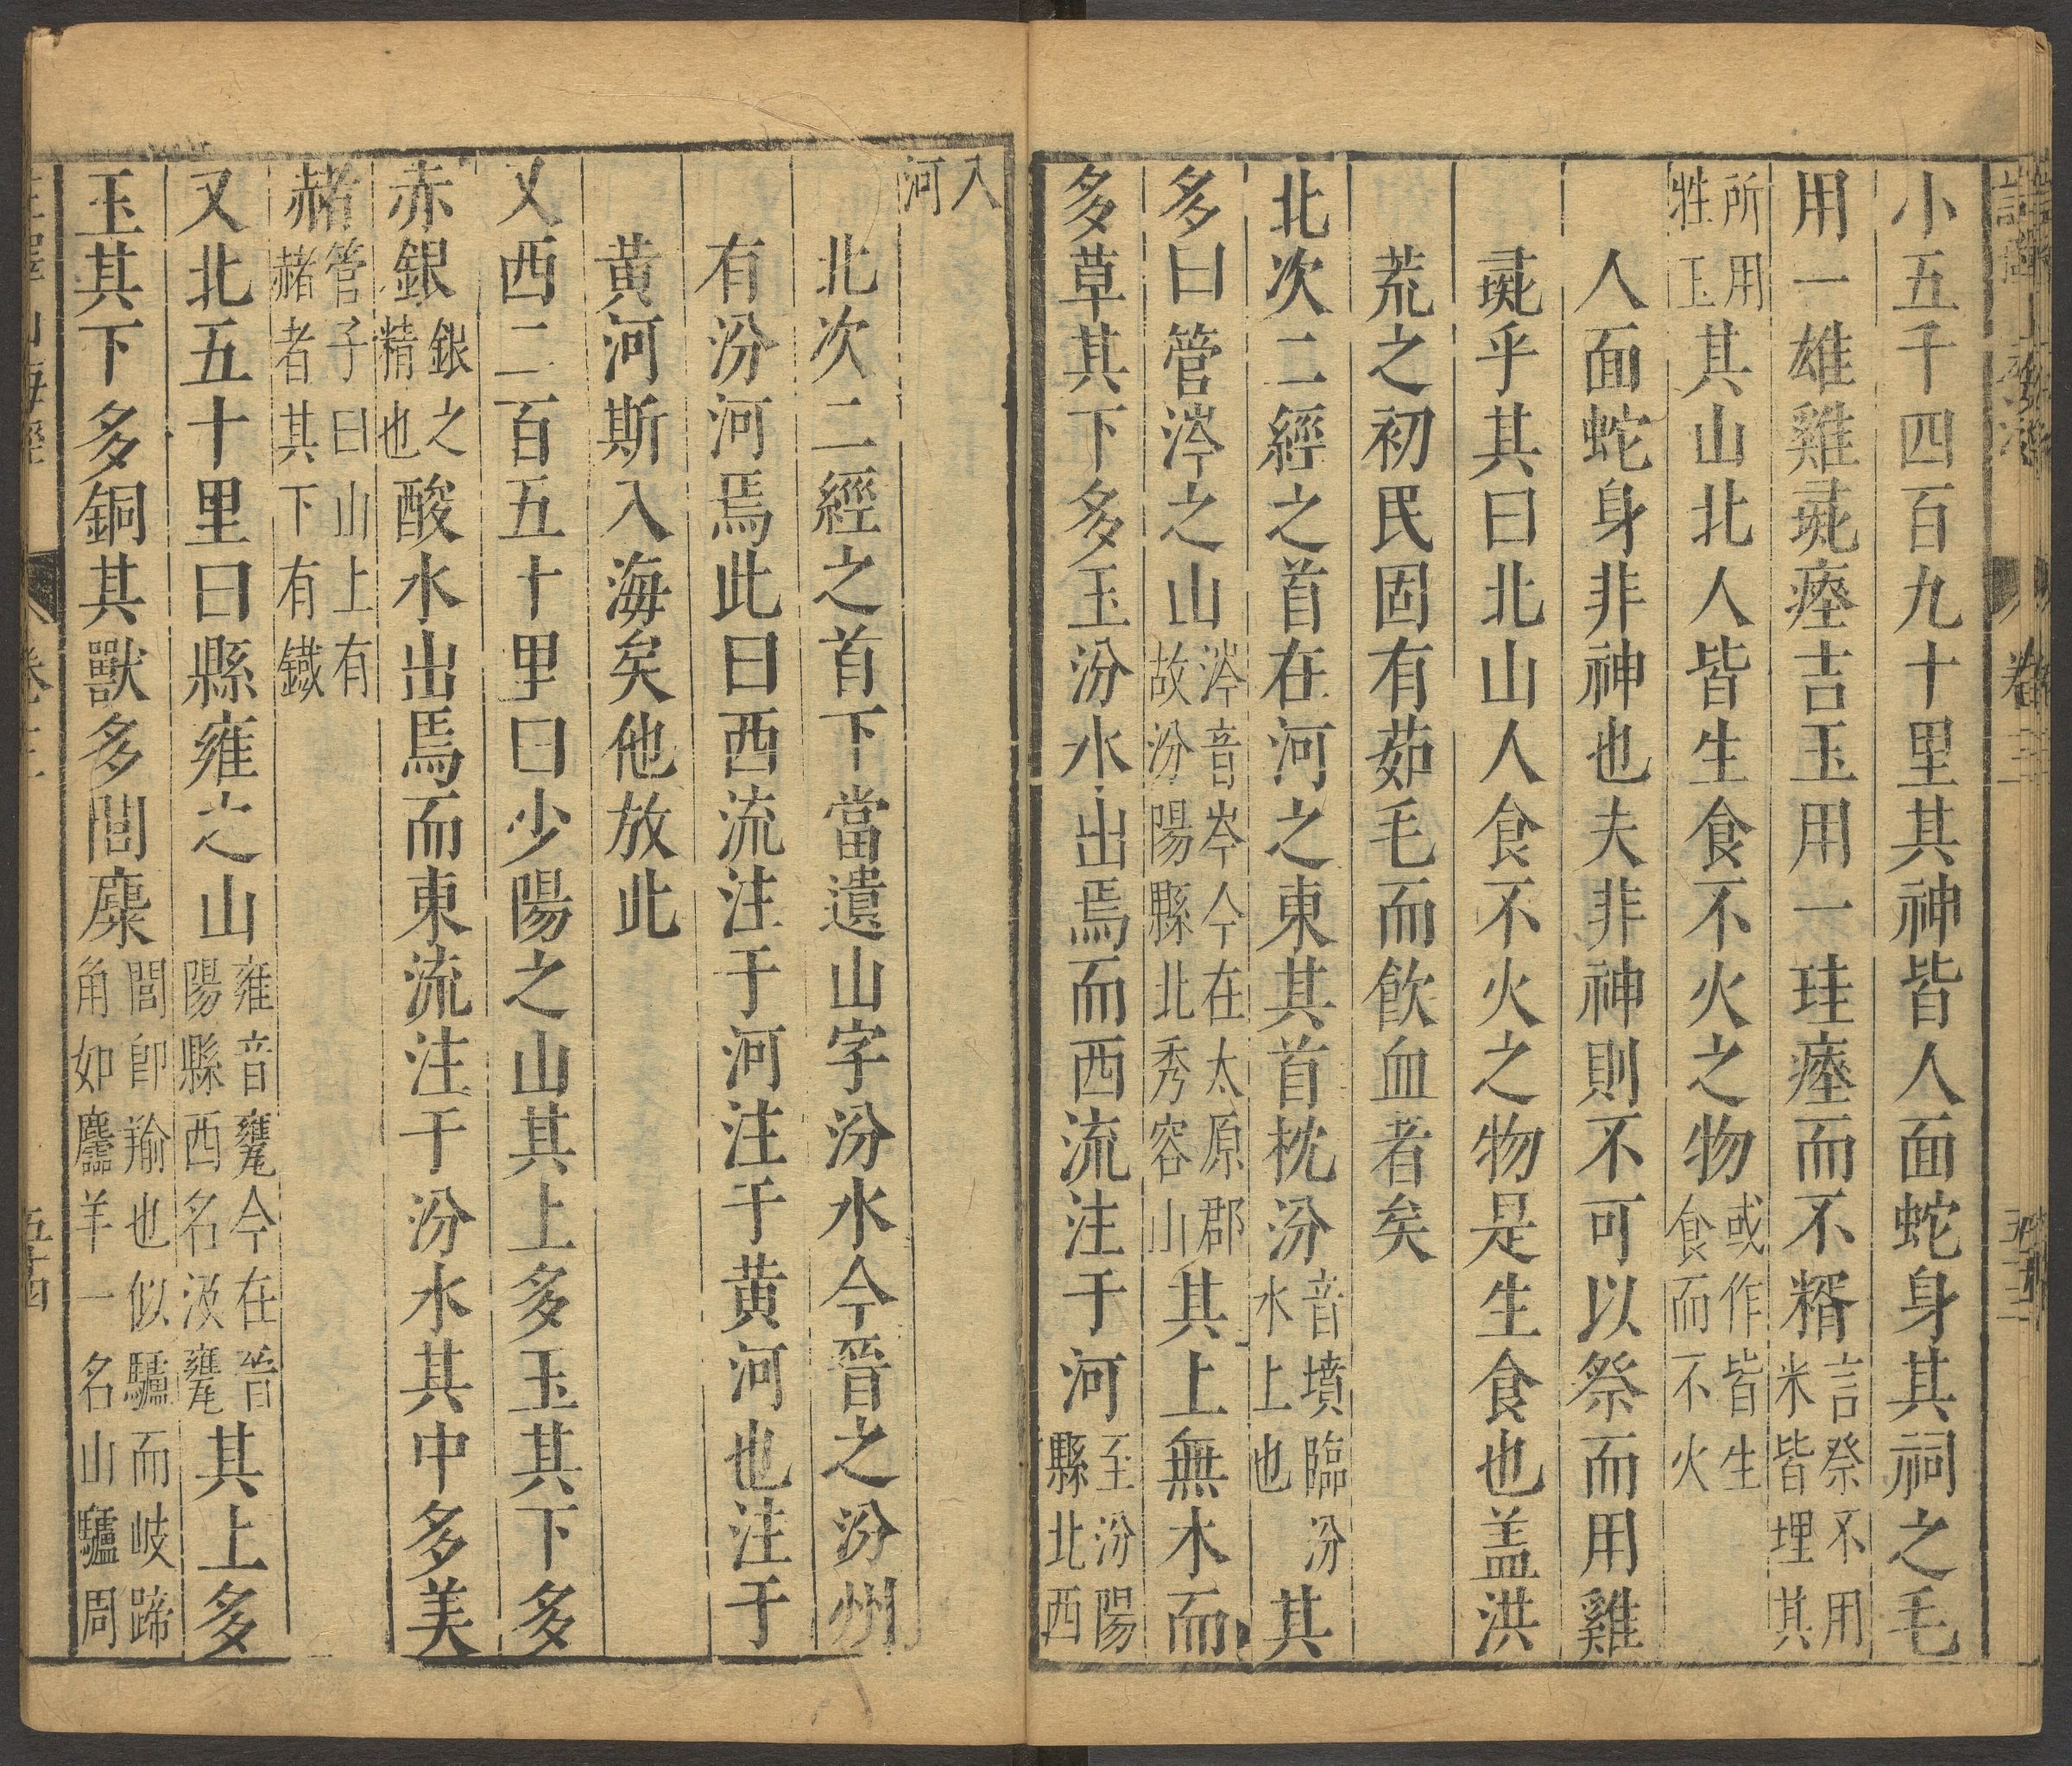 小五千四百九十里其神皆人面蛇身其祠之毛
用一雄雞彘瘞吉玉用一珪瘞而不糈言祭不用米皆埋其
所用牲玉其山北人皆生食不火之物或作皆生食而不火
人面蛇身非神也夫非神則不可以祭而用雞
彘乎其曰北山人食不火之物是生食也盖洪
荒之初民固有茹毛而飲血者矣
北次二經之首在河之東其首枕汾音墳臨汾水上也其
多曰管涔之山涔音岑今在太原郡故汾陽縣北秀容山其上無木而
多草其下多玉汾水出焉而西流注于河至汾陽縣北西
入河
北次二經之首下當遺山字汾水今晉之汾州
有汾河焉此曰西流注于河注于黄河也注于
黄河斯入海矣他放此
又西二百五十里曰少陽之山其上多玉其下多
赤銀銀之精也酸水出焉而東流注于汾水其中多美
赭管子曰山上有赭者其下有鐵
又北五十里曰縣雍之山雍音甕今在晉陽縣西名汲甕其上多
玉其下多銅其獸多閭麋閭即羭也似驢而岐蹄角如麢羊一名山驢周
卷三
五十四